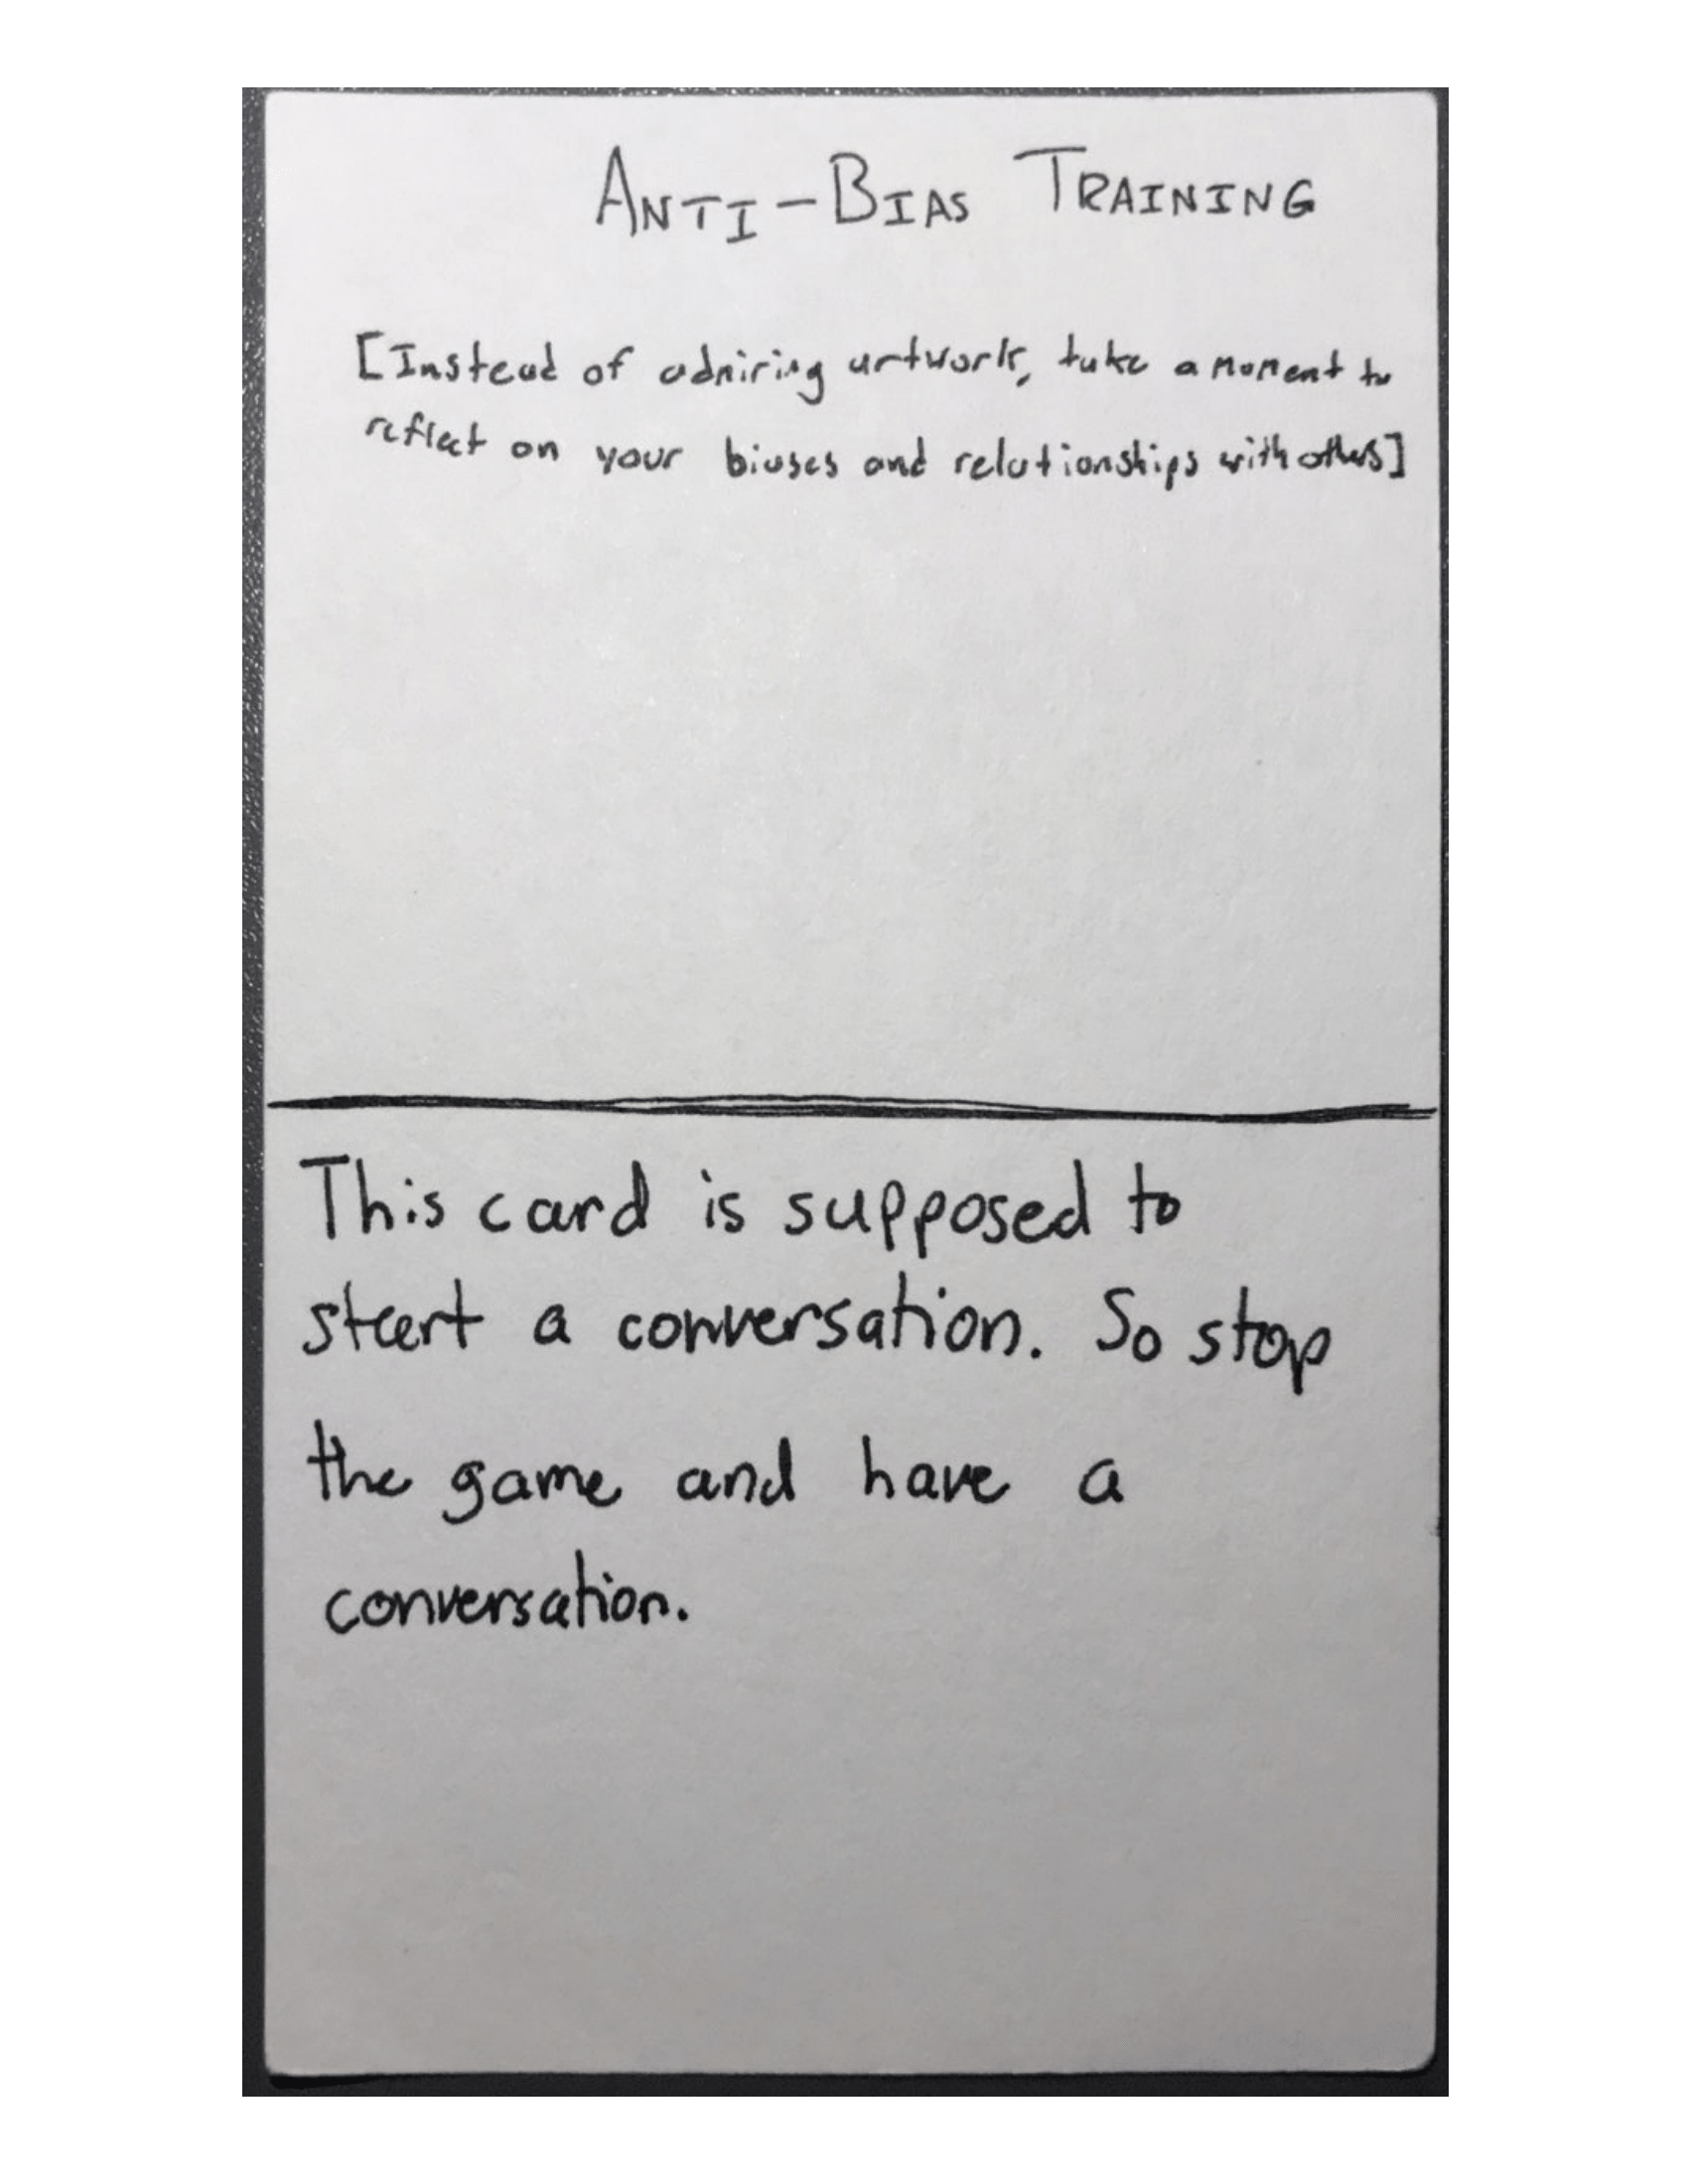 ANTI-BIAS TRAINING
[Instead of admiring artwork, take a moment to
reflect on your biases and relationships with others]
This card is supposed to
start a conversation. So stop
the game and have a
conversation.